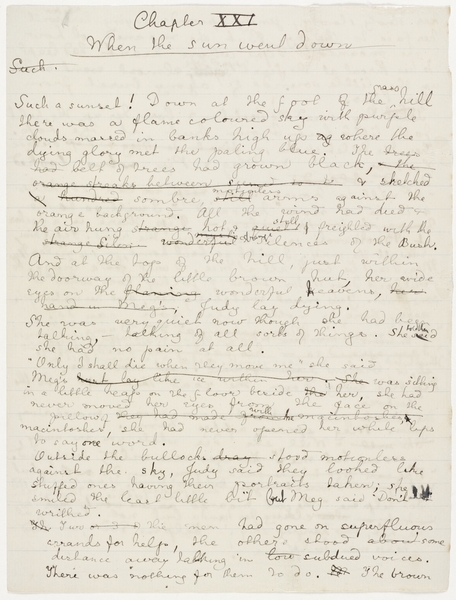 Chapter XXI
When the sun went down
Such.
Such a sunset! Down at the foot of the grass hill
there was a flame coloured sky with purple
clouds massed in banks high up where the
dying glory met the paling blue. The trees
had belt of trees had grown black, the
orange streaks between & stretched
hundred sombre, motionless still arms against the
orange background. All the wind had died &
the air hung strange, hot & still freighted with the
strange silent wonderful silences of the Bush.
And at the top of the hill, just within
the doorway of the little brown hut, her wide
eyes on the flaming wonderful heavens, her
hand in Meg's, Judy lay dying.
She was very quiet now though she had been
talking – talking of all sorts of things. She said
she had no pain at all.
"Only I shall die when they move me" she said
Meg's heart lay like ice within her. She was sitting
in a little heap on the floor beside her, she had
never moved her eyes from the face on the
pillow, they had made with
macintoshes, she had never opened her white lips
to say one word.
Outside the bullock dray stood motionless
against the sky, Judy said they looked like
stuffed ones having their portraits taken; she
smiled the least little bit but Meg said "Don't"
writhed.
Two the men had gone on superfluous
errands for help, the others stood about some
distance away talking in low subdued voices.
There was nothing for them to do. The brown